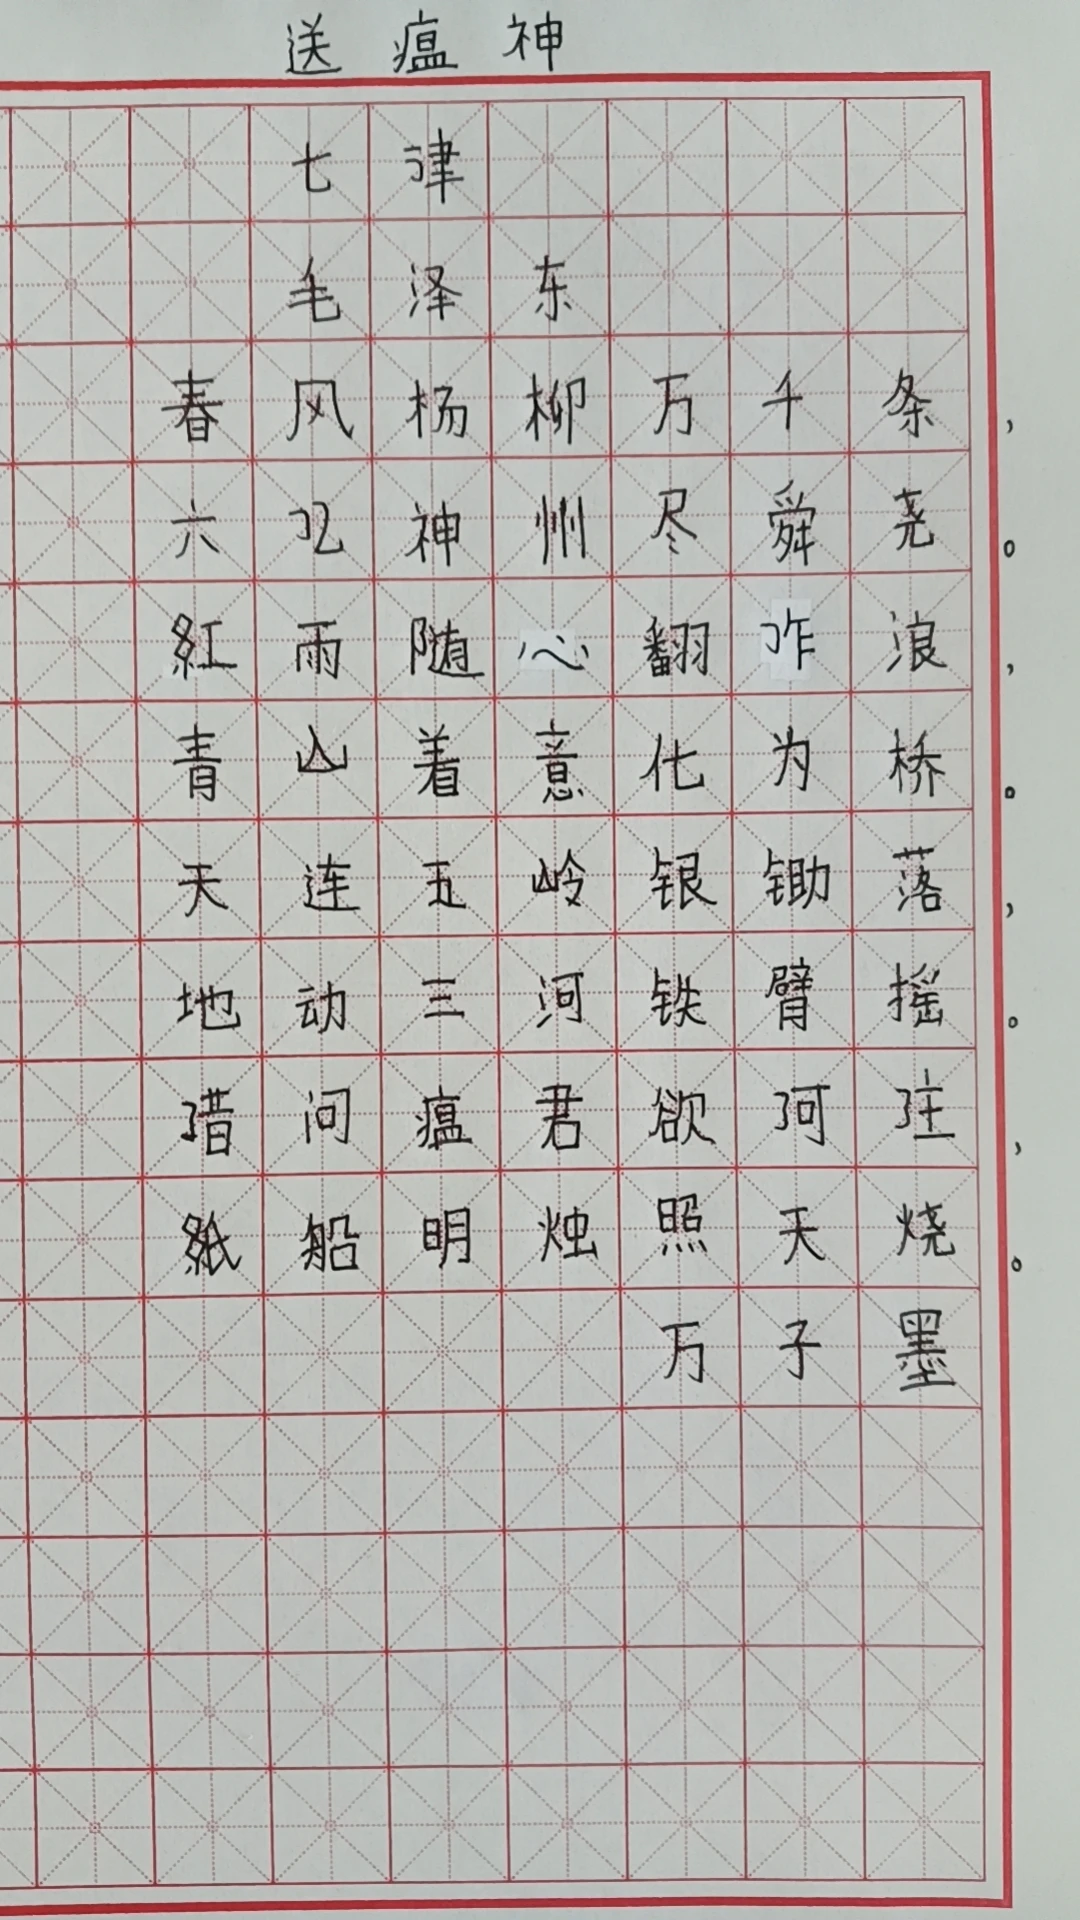 送瘟神
七律
毛泽东
春风杨柳万千条，
六亿神州尽舜尧。
紅雨随心翻作浪，
青山着意化为桥。
天连五岭银锄落，
地动三河铁臂摇。
借问瘟君欲何往，
紙船明烛照天烧。
万子墨